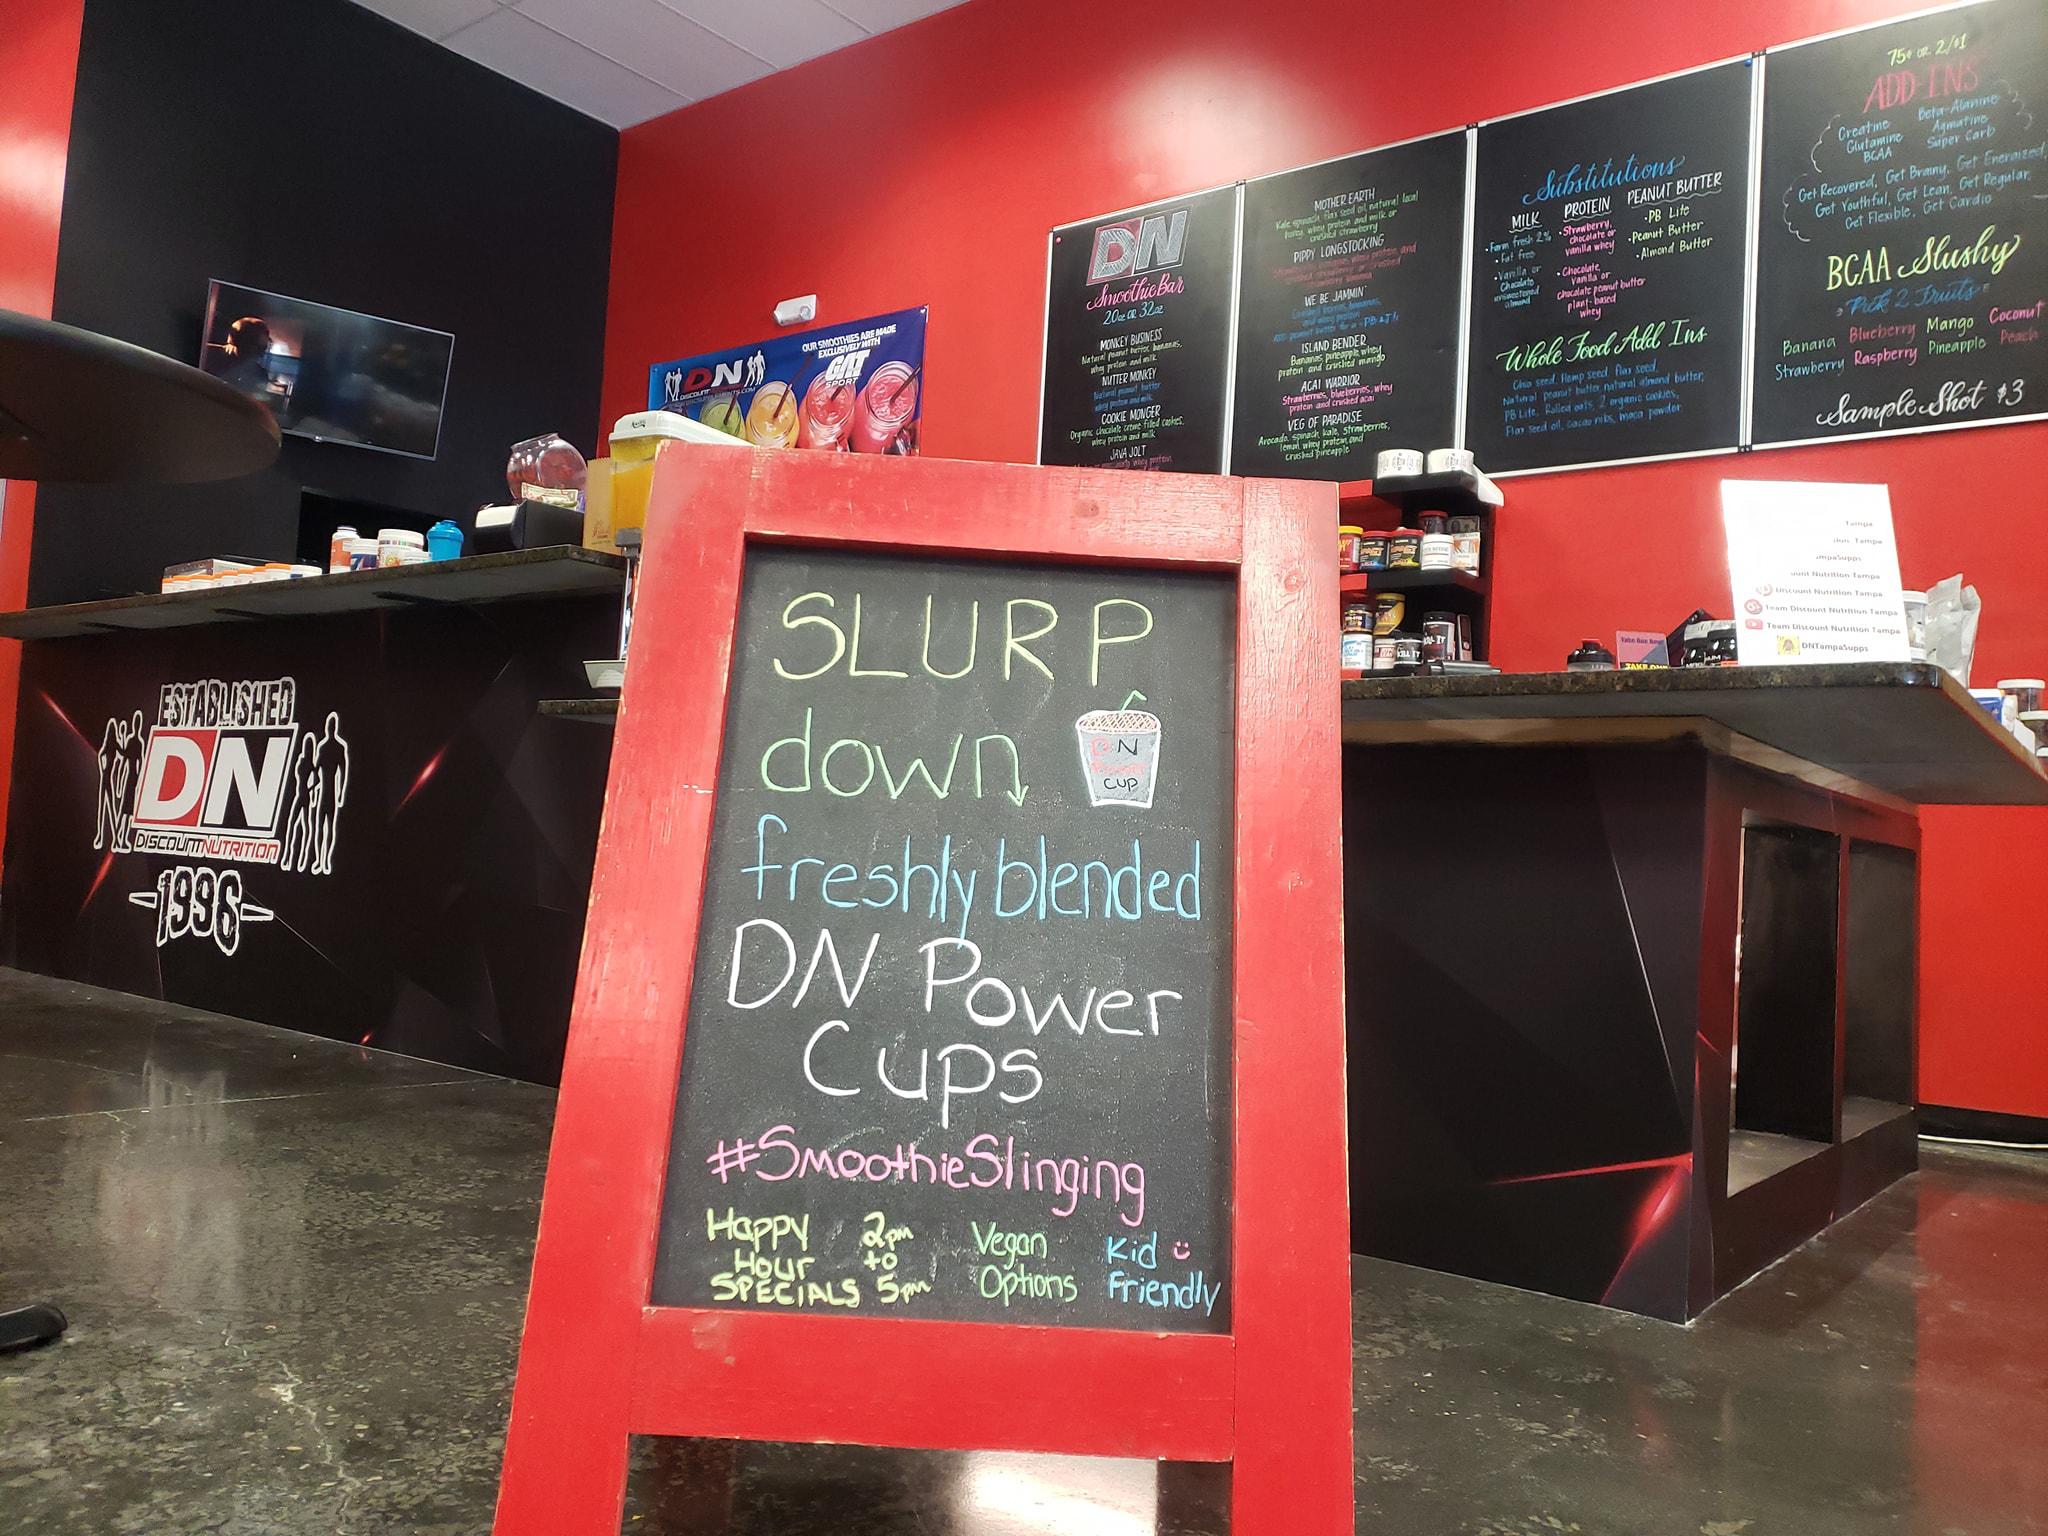 SLURP
down
DN
Power
Cup
freshly blended
DN Power
Cups
#SmoothieSlinging
Happy
Hour
SPECIALS
2pm
to
5pm
Vegan
Options
Kid
Friendly
ESTABLISHED
DN
DISCOUNT NUTRITION
1996
OUR SMOOTHIES ARE MADE
EXCLUSIVELY WITH
GAT
SPORT
DN
DN
Smoothie Bar
20oz OR 32oz
MONKEY BUSINESS
Natural peanut butter, bananas,
whey protein and milk
NUTTER MONKEY
Natural peanut butter
whey protein and milk
COOKIE MONGER
Organic chocolate creme filled cookies,
whey protein and milk
JAVA JOLT
MOTHER EARTH
Kale, spinach, flax seed oil, natural local
honey, whey protein and milk or
crushed strawberry
PIPPY LONGSTOCKING
WE BE JAMMIN'
ISLAND BENDER
Bananas, pineapple, whey
protein and crushed mango
ACAI WARRIOR
Strawberries, blueberries, whey
protein and crushed acai
VEG OF PARADISE
Avocado, spinach, kale, strawberries,
lemon, whey protein, and
crushed pineapple
Substitutions
MILK
• Farm fresh 2%
• Fat free
• Vanilla or
Chocolate
unsweetened
almond
PROTEIN
• Strawberry,
chocolate or
vanilla whey
• Chocolate,
vanilla or
chocolate peanut butter
plant-based
whey
PEANUT BUTTER
• PB Lite
• Peanut Butter
• Almond Butter
Whole Food Add Ins
Chia seed, Hemp seed, flax seed,
Natural peanut butter, natural almond butter,
PB Lite, Rolled oats, 2 organic cookies,
Flax seed oil, cacao nibs, maca powder
75¢ OR 2/$1
ADD-INS
Creatine
Glutamine
BCAA
Beta-Alanine
Agmatine
Super Carb
Get Recovered, Get Brainy, Get Energized,
Get Youthful, Get Lean, Get Regular,
Get Flexible, Get Cardio
BCAA Slushy
Pick 2 Fruits
Banana Blueberry Mango Coconut
Strawberry Raspberry Pineapple Peach
Sample Shot $3
Tampa
Tampa
TampaSupps
Nutrition Tampa
Discount Nutrition Tampa
Team Discount Nutrition Tampa
Team Discount Nutrition Tampa
DNTampaSupps